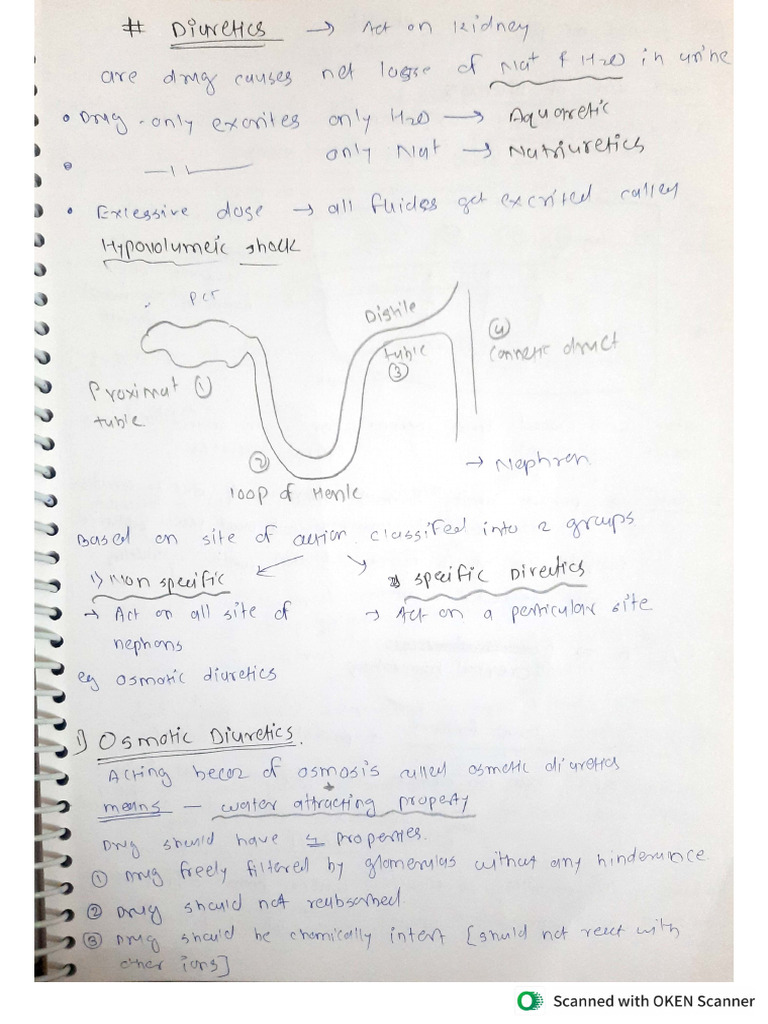 # Diuretics → Act on Kidney
are drug causes net losse of Na+ & H2O in urine
• Drug - only excrites only H2O → Aquaretic
• —11— only Na+ → Natriuretics
• Exiessive dose → all fluides get excrited calley
Hypovolumeic shock
PCT
Distile
tubie
③
④
Connetic duuct
Proximat ①
tubie
②
loop of Henle
→ Nephren
Based on site of action classified into 2 groups
1) Non specific
2) Specific Direstics
→ Act on all site of
nephons
→ Act on a perticular site
eg osmotic diuretics
1) Osmotic Diuretics.
Acting becoz of osmosis called osmotic diuretics
means — water attracting property
Drug should have 4 Properties.
① Drug freely filtered by glomerulas without any hinderance
② Drug should not reubsorbed
③ Drug should be chemically intert [should not react with
other ions]
Scanned with OKEN Scanner